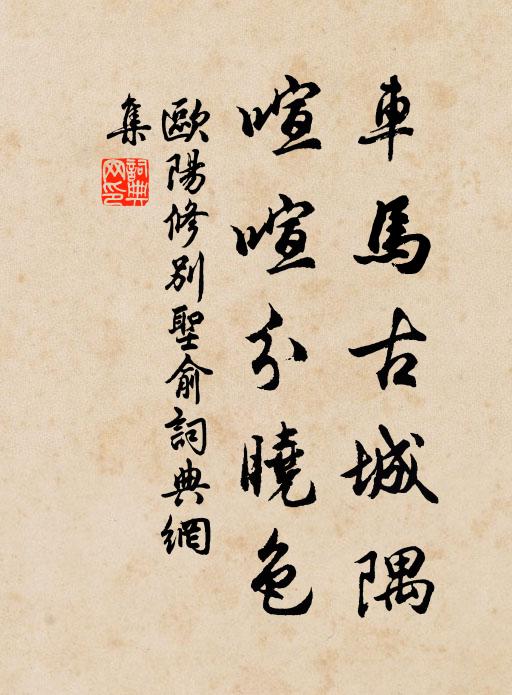 車馬古城隅
喧喧分曉色
歐陽修別聖俞詞典網
集
詞典網印